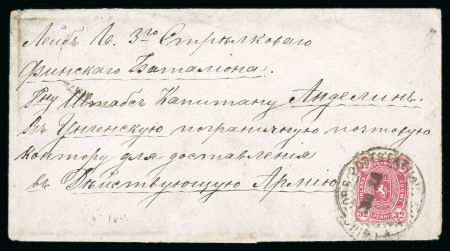 Лейбъ Гв. 3го Стрѣлковаго
Финскаго Баталіона.
Гну Штабсъ Капитану Анделинъ.
Въ Унгенскую пограничную почтовую
контору для доставленія
въ Дѣйствующую Армію